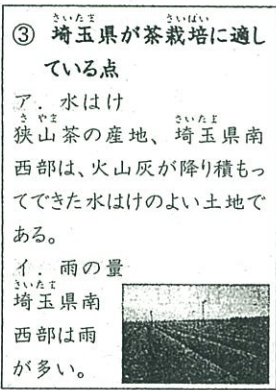 ③ 埼玉県が茶栽培に適し
ている点
ア．水はけ
狭山茶の産地、埼玉県南
西部は、火山灰が降り積もっ
てできた水はけのよい土地で
ある。
イ．雨の量
埼玉県南
西部は雨
が多い。